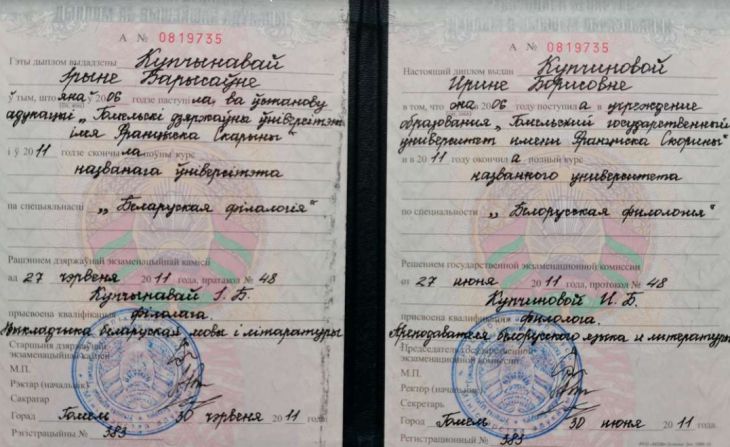 А № 0819735
Гэты дыплом выдадзены Купчынавай
Ірыне Барысаўне
ў тым, што яна ў 2006 годзе паступіла ва ўстанову
адукацыі „Гомельскі дзяржаўны ўніверсітэт
імя Францыска Скарыны“
і ў 2011 годзе скончыла поўны курс
названага ўніверсітэта
па спецыяльнасці „Беларуская філалогія“
Рашэннем дзяржаўнай экзаменацыйнай камісіі
ад 27 чэрвеня 2011 года, пратакол № 48
Купчынавай І. Б.
прысвоена кваліфікацыя філолага.
Выкладчыка беларускай мовы і літаратуры
Старшыня дзяржаўнай
экзаменацыйнай камісіі
М.П.
Рэктар (начальнік)
Сакратар
Горад Гомель 30 чэрвеня 2011 года.
Рэгістрацыйны № 383
А № 0819735
Настоящий диплом выдан Купчиновой
Ирине Борисовне
в том, что она в 2006 году поступила в учреждение
образования „Гомельский государственный
университет имени Франциска Скорины“
и в 2011 году окончила полный курс
названного университета
по специальности „Белорусская филология“
Решением государственной экзаменационной комиссии
от 27 июня 2011 года, протокол № 48
Купчиновой И. Б.
присвоена квалификация филолога.
Преподавателя белорусского языка и литературы
Председатель государственной
экзаменационной комиссии
М.П.
Ректор (начальник)
Секретарь
Город Гомель 30 июня 2011 года.
Регистрационный № 383